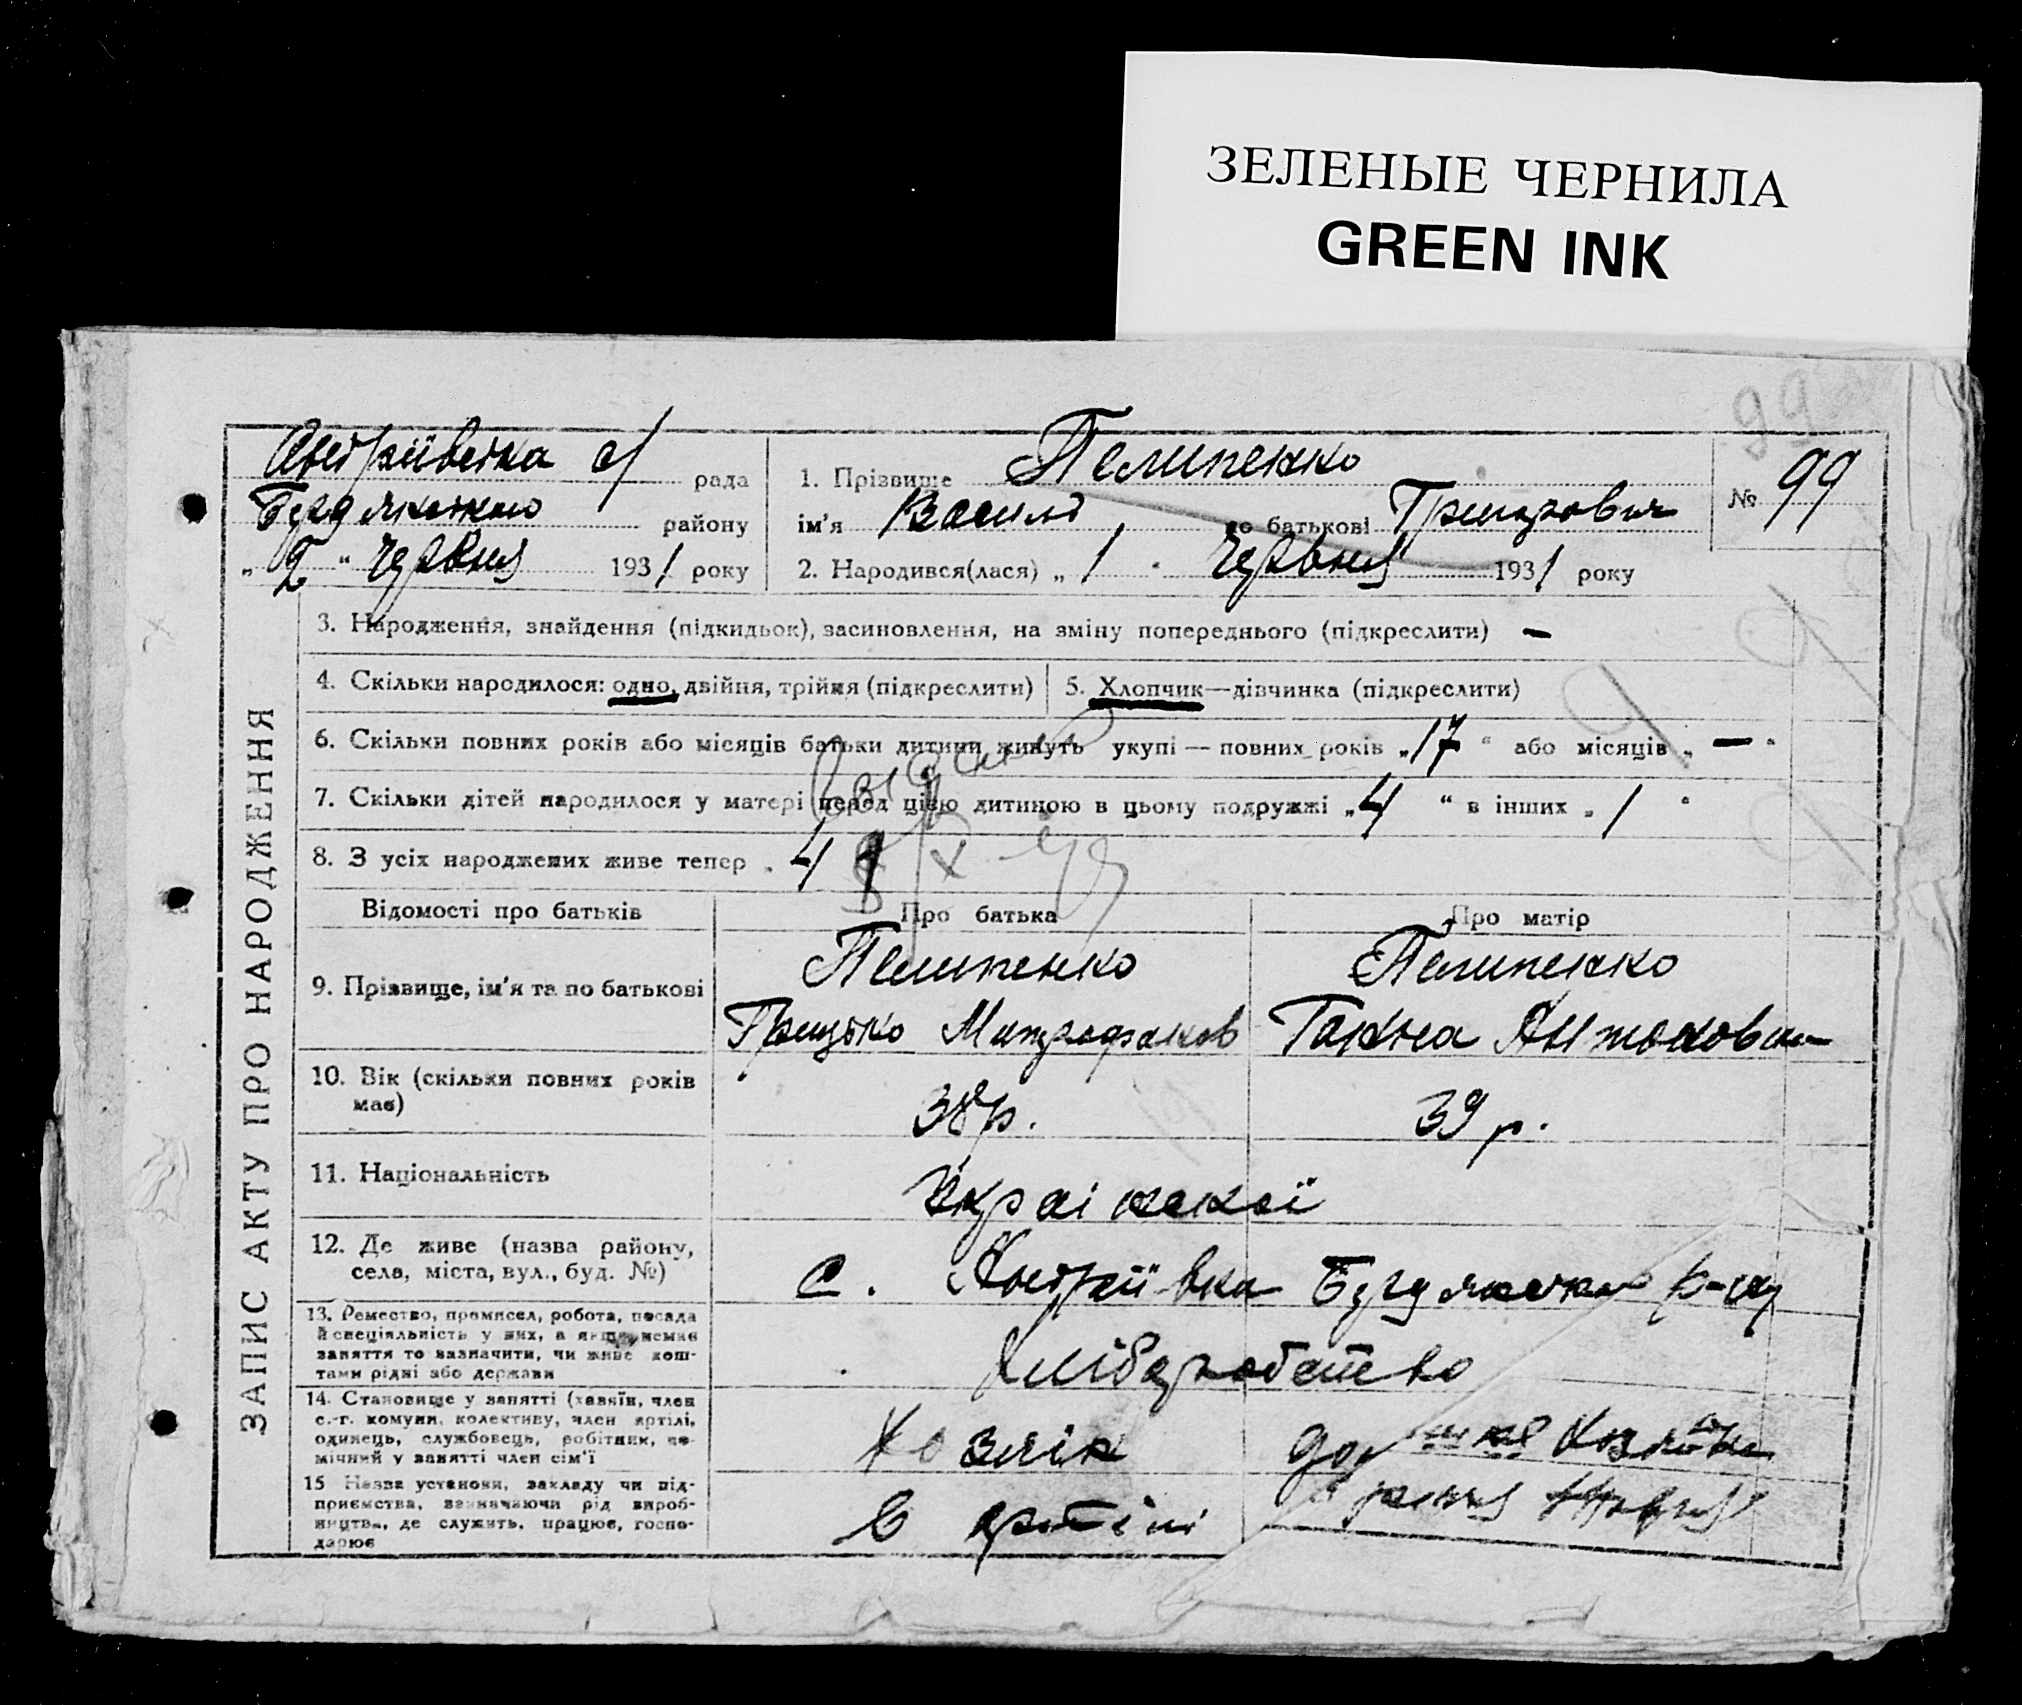 ЗЕЛЕНЫЕ ЧЕРНИЛА
GREEN INK
99
Андріївська с/ рада
Бердянського району
„ 2 “ червня 1931 року
1. Прізвище Пелипенко
ім'я Василь по батькові Григорович
2. Народився(лася) „ 1 червня 1931 року
№ 99
ЗАПИС АКТУ ПРО НАРОДЖЕННЯ
3. Народження, знайдення (підкидьок), засиновлення, на зміну попереднього (підкреслити) —
4. Скільки народилося: одно, двійня, трійня (підкреслити)
5. Хлопчик—дівчинка (підкреслити)
6. Скільки повних років або місяців батьки дитини живуть укупі — повних років „17“ або місяців „—“
7. Скільки дітей народилося у матері перед цією дитиною в цьому подружжі „4“ в інших „1“
8. З усіх народжених живе тепер „4
Відомості про батьків
Про батька
Про матір
9. Прізвище, ім'я та по батькові
Пелипенко
Грицько Митрофанов
Пелипенко
Ганна Антоновна
10. Вік (скільки повних років має)
38 р.
39 р.
11. Національність
Української
12. Де живе (назва району, села, міста, вул., буд. №)
с. Андріївка Бердянського р-ну
13. Ремество, промисел, робота, посада й спеціяльність у них, а якщо немає заняття то зазначити, чи живе коштами рідні або держави
Хліборобство
14. Становище у занятті (хазяїн, член с.-г. комуни, колективу, член артілі, одинець, службовець, робітник, помічний у занятті член сім'ї
Хозяін
15 Назва установи, закладу чи підприємства, зазначаючи рід виробництва, де служить, працює, господарює
В артілі